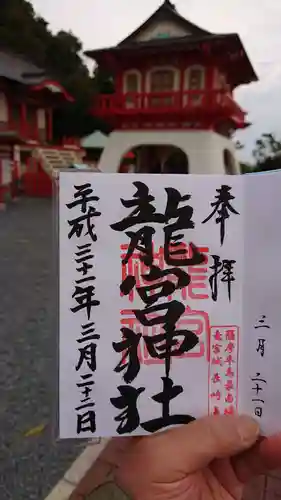 奉拝
龍宮神社
平成三十一年三月二十一日
薩摩半島最南端
龍宮城長崎鼻
三月二十一日